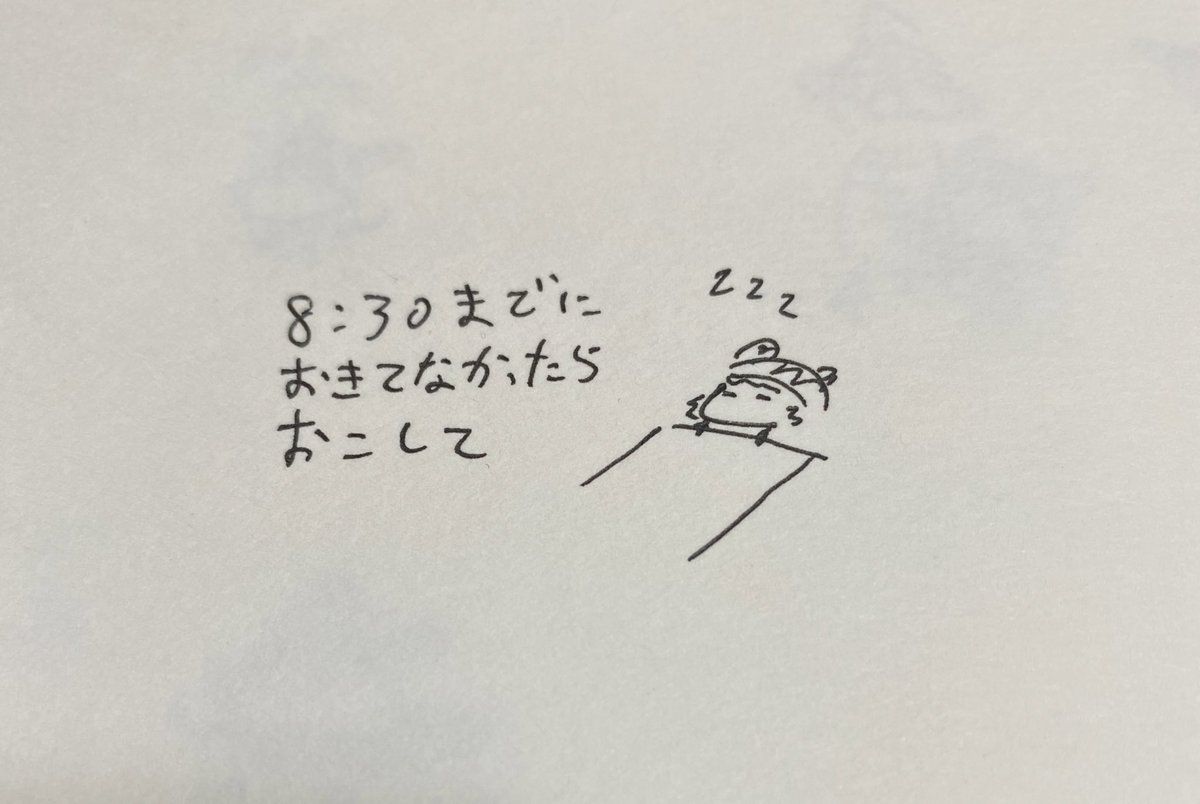 8:30までに
おきてなかったら
おこして
zzz